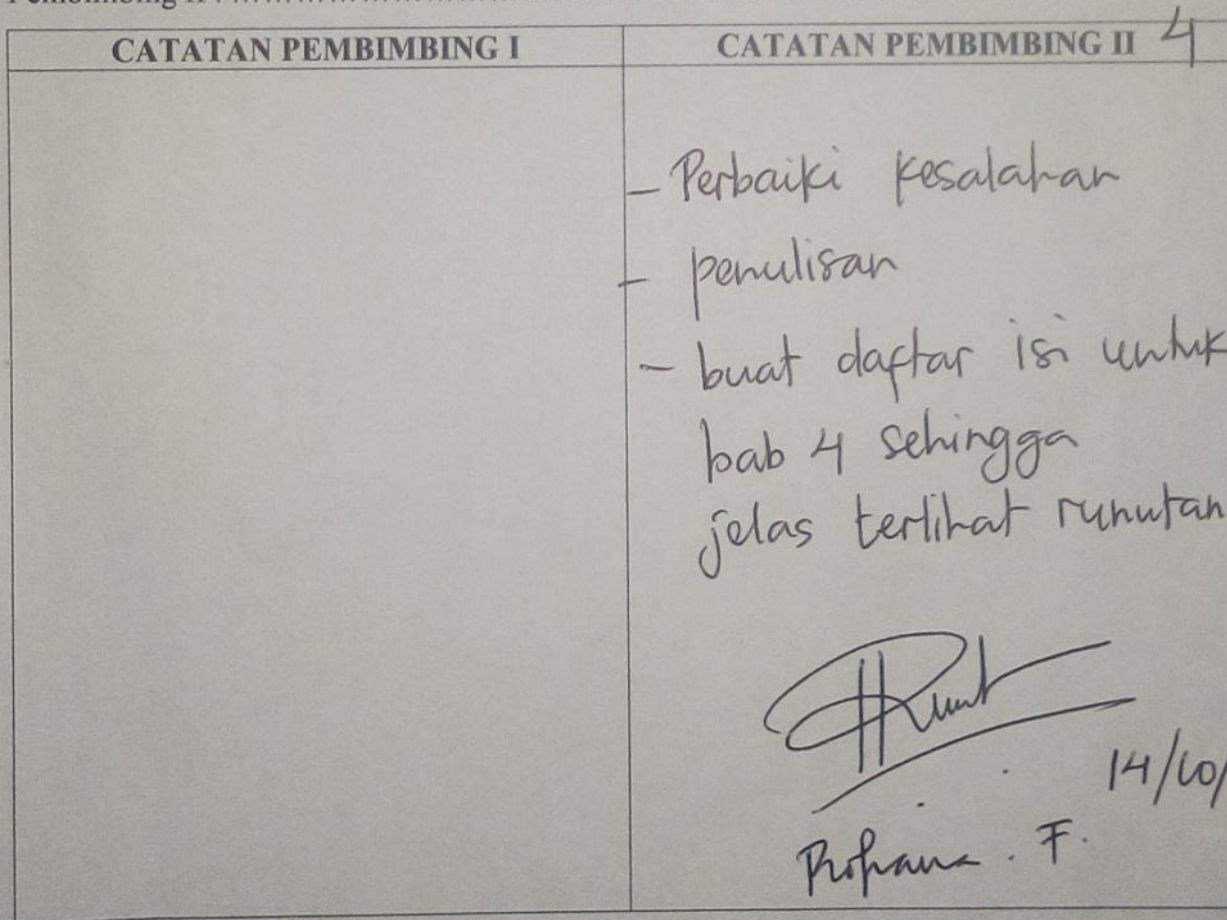 Pembimbing II : ........................
CATATAN PEMBIMBING I
CATATAN PEMBIMBING II 4
- Perbaiki kesalahan
- penulisan
- buat daftar isi untuk
bab 4 sehingga
jelas terlihat runutan
14/10/
F.